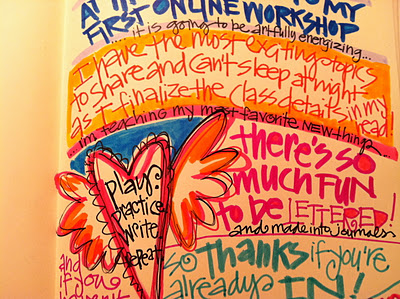 MY
FIRST ONLINE WORKSHOP
...it is going to be artfully energizing...
I have the most exciting topics
to share and can't sleep at nights
as I finalize the class details in my head!
...im teaching my most favorite NEW things...
there's so
much FUN
to be LETTERED!
and made into journals
play?
practice
write
repeat
so THANKS if you're
already IN!
and
if you